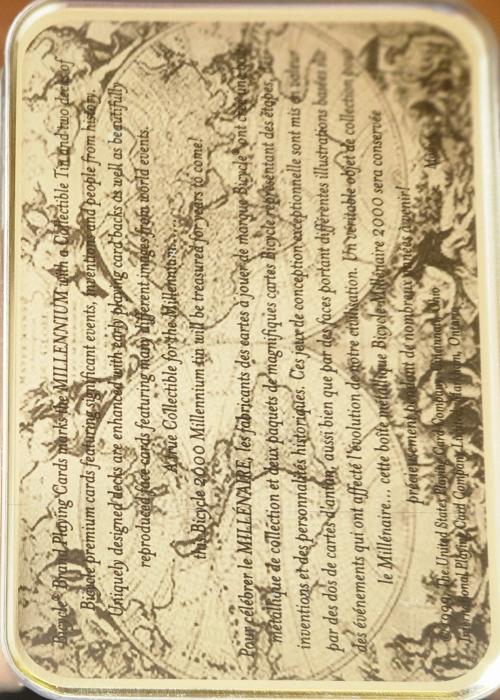 Bicycle® Brand Playing Cards marks the MILLENNIUM with a Collectible Tin and two decks of
Bicycle premium cards featuring significant events, inventions and people from history.
Uniquely designed decks are enhanced with early playing card backs as well as beautifully
reproduced face cards featuring many different images from world events.
A true Collectible for the Millennium....
this Bicycle 2000 Millennium tin will be treasured for years to come!
Pour célébrer le MILLÉNAIRE, les fabricants des cartes à jouer de marque Bicycle® ont créé une
métallique de collection et deux paquets de magnifiques cartes Bicycle représentant des étapes,
inventions et des personnalités historiques. Ces jeux de conception exceptionnelle sont mis en valeur
par des dos de cartes d'antan, aussi bien que par des faces portant différentes illustrations basées
des événements qui ont affecté l'évolution de notre civilisation. Un véritable objet de collection pour
le Millénaire... cette boîte métallique Bicycle Millénaire 2000 sera conservée
précieusement pendant de nombreuses années à venir!
©1999 The United States Playing Card Company, Cincinnati, Ohio
International Playing Card Company Limited, Ontario